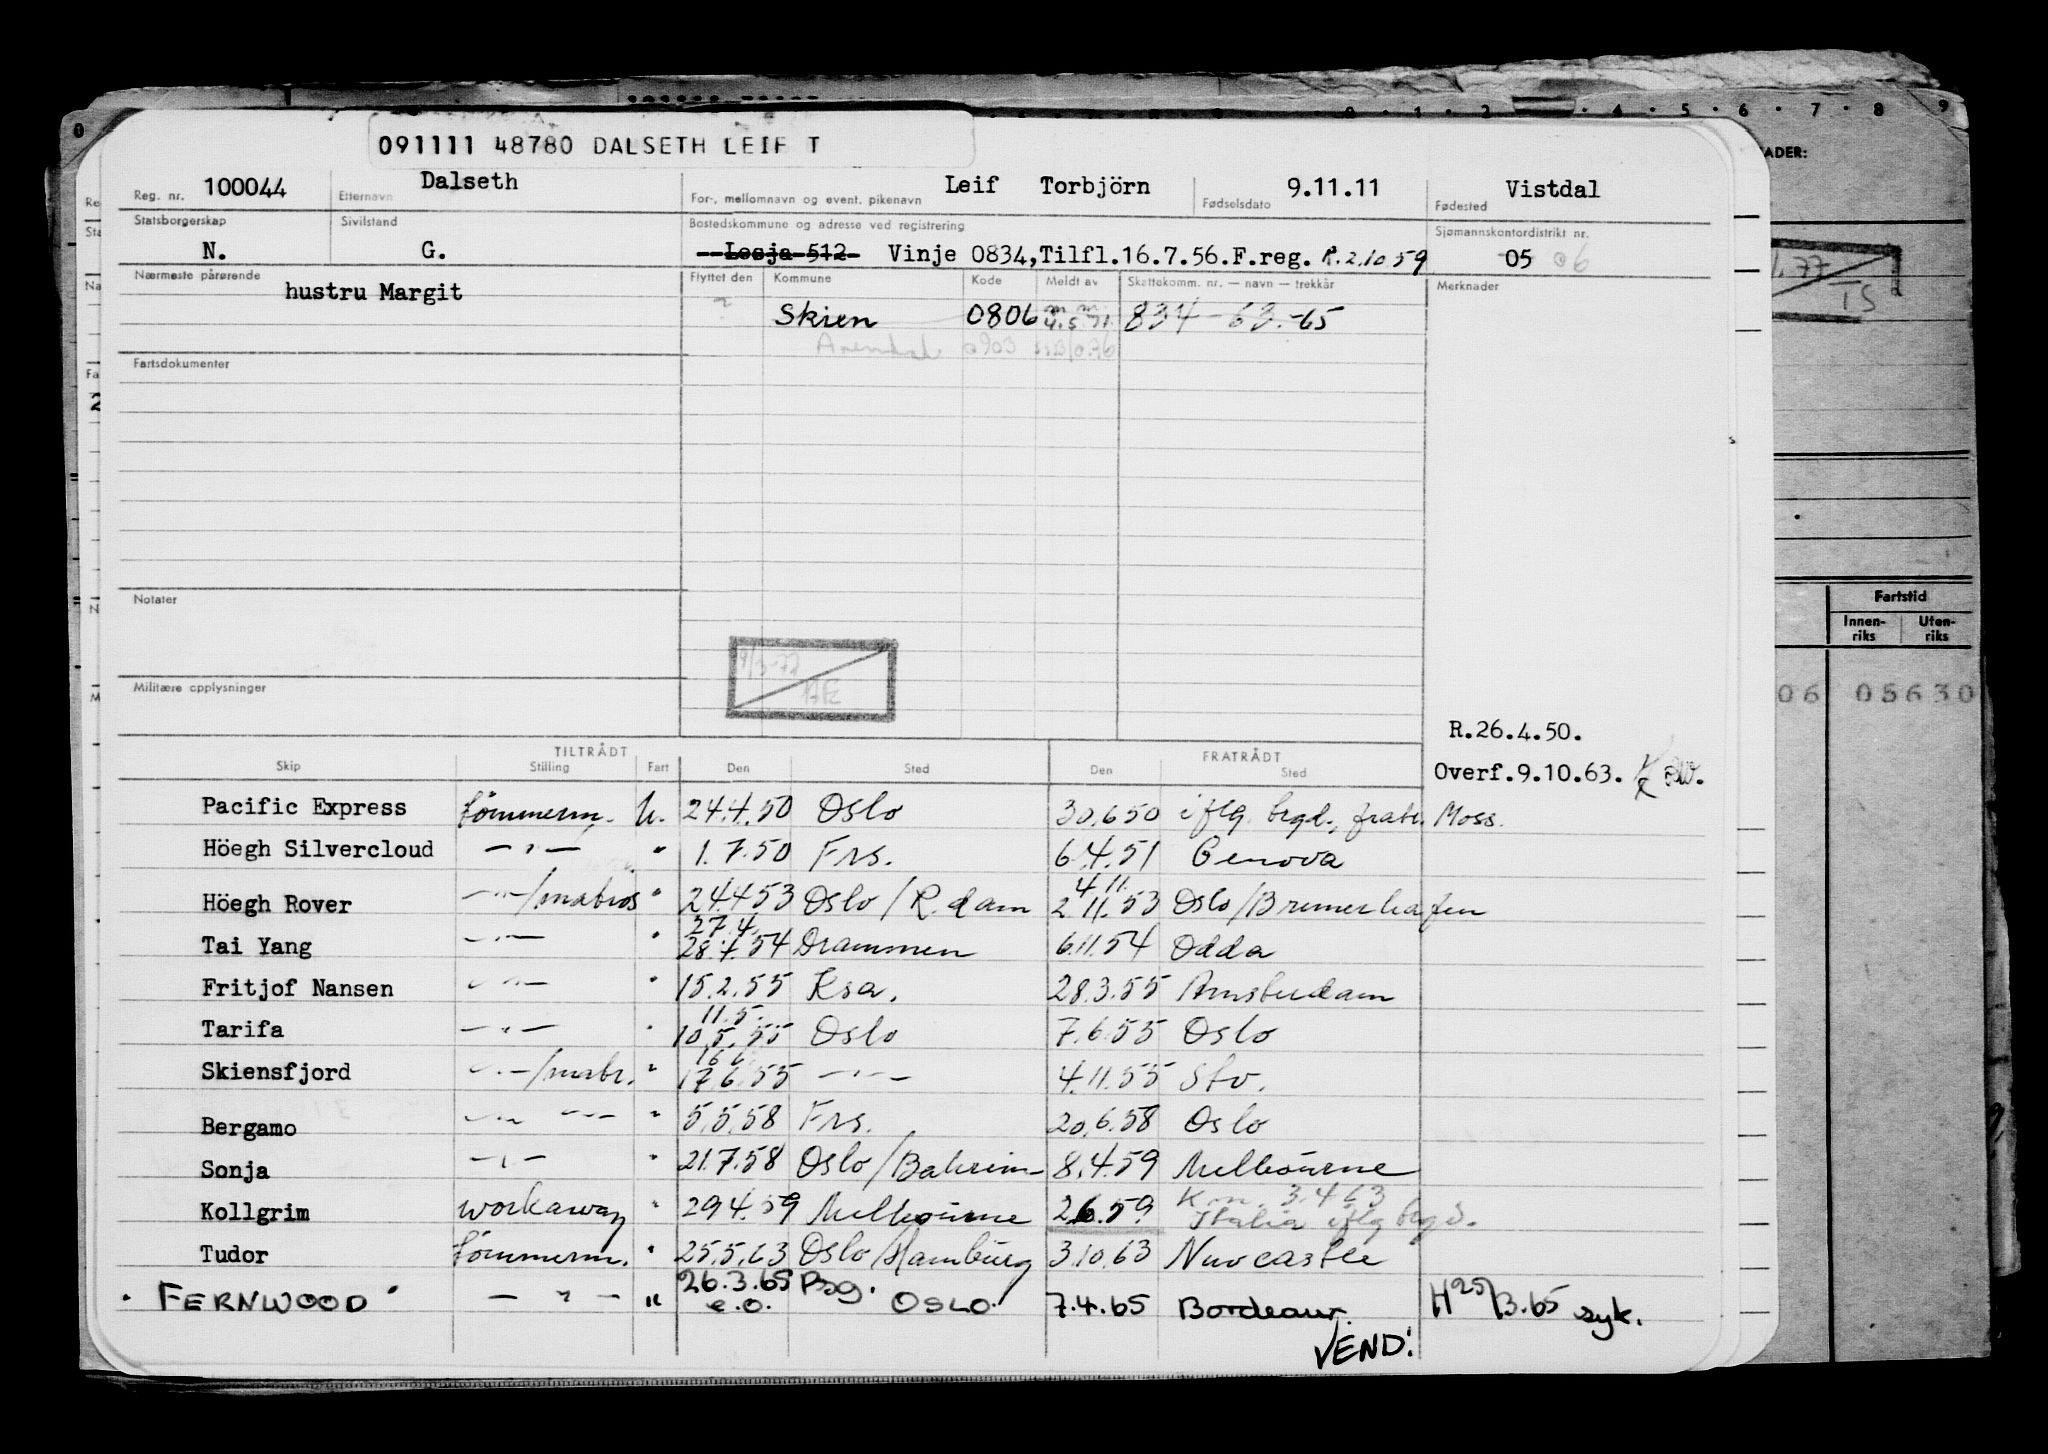 091111 48780 DALSETH LEIF T
Reg. nr. 100044 Etternavn Dalseth For-, mellomnavn og event. pikenavn Leif Torbjörn Fødselsdato 9.11.11 Fødested Vistdal
Statsborgerskap N. Sivilstand G. Bostedskommune og adresse ved registrering Losja 512 Vinje 0834,Tilfl.16.7.56.F.reg. R.2.10 59 Sjømannskontordistrikt nr. 05 06
Nærmeste pårørende hustru Margit Flyttet den Kommune Kode Meldt av Skattekomm. nr. — navn — trekkår Merknader
Skien 0806 834-63-65
Arendal 0903
Fartsdokumenter
Notater
Militære opplysninger
R.26.4.50.
Overf.9.10.63.
TILTRÅDT FRATRÅDT
Skip Stilling Fart Den Sted Den Sted
Pacific Express tömmerm. U. 24.4.50 Oslo 30.6.50 iflg. brgd., fratr. Moss.
Höegh Silvercloud — " — " 1.7.50 Frs. 6.4.51 Genova
4.11.
Höegh Rover — " —/matros " 24.4.53 Oslo/R.dam 2.11.53 Oslo/Bremerhafen
27.4.
Tai Yang — " — " 28.4.54 Drammen 6.11.54 Odda
Fritjof Nansen — " — " 15.2.55 Ksa. 28.3.55 Amsterdam
11.5.
Tarifa — " — " 10.5.55 Oslo 7.6.55 Oslo
16.6.
Skiensfjord — " —/matr. " 17.6.55 — " — 4.11.55 Stv.
Bergamo — " — — " — " 5.5.58 Frs. 20.6.58 Oslo
Sonja — " — " 21.7.58 Oslo/Bahrein 8.4.59 Melbourne
Kollgrim workaway " 29.4.59 Melbourne 2.6.59 3.4.63
Italia iflg brgd.
Tudor tömmerm. " 25.5.63 Oslo/Hamburg 3.10.63 Newcastle
"FERNWOOD" — " — " 26.3.65 Pbg.
e.o. OSLO 7.4.65 Bordeaux. H 25/3.65 syk.
VEND!
ADER:
Fartstid
Innen-riks Uten-riks
06 05630